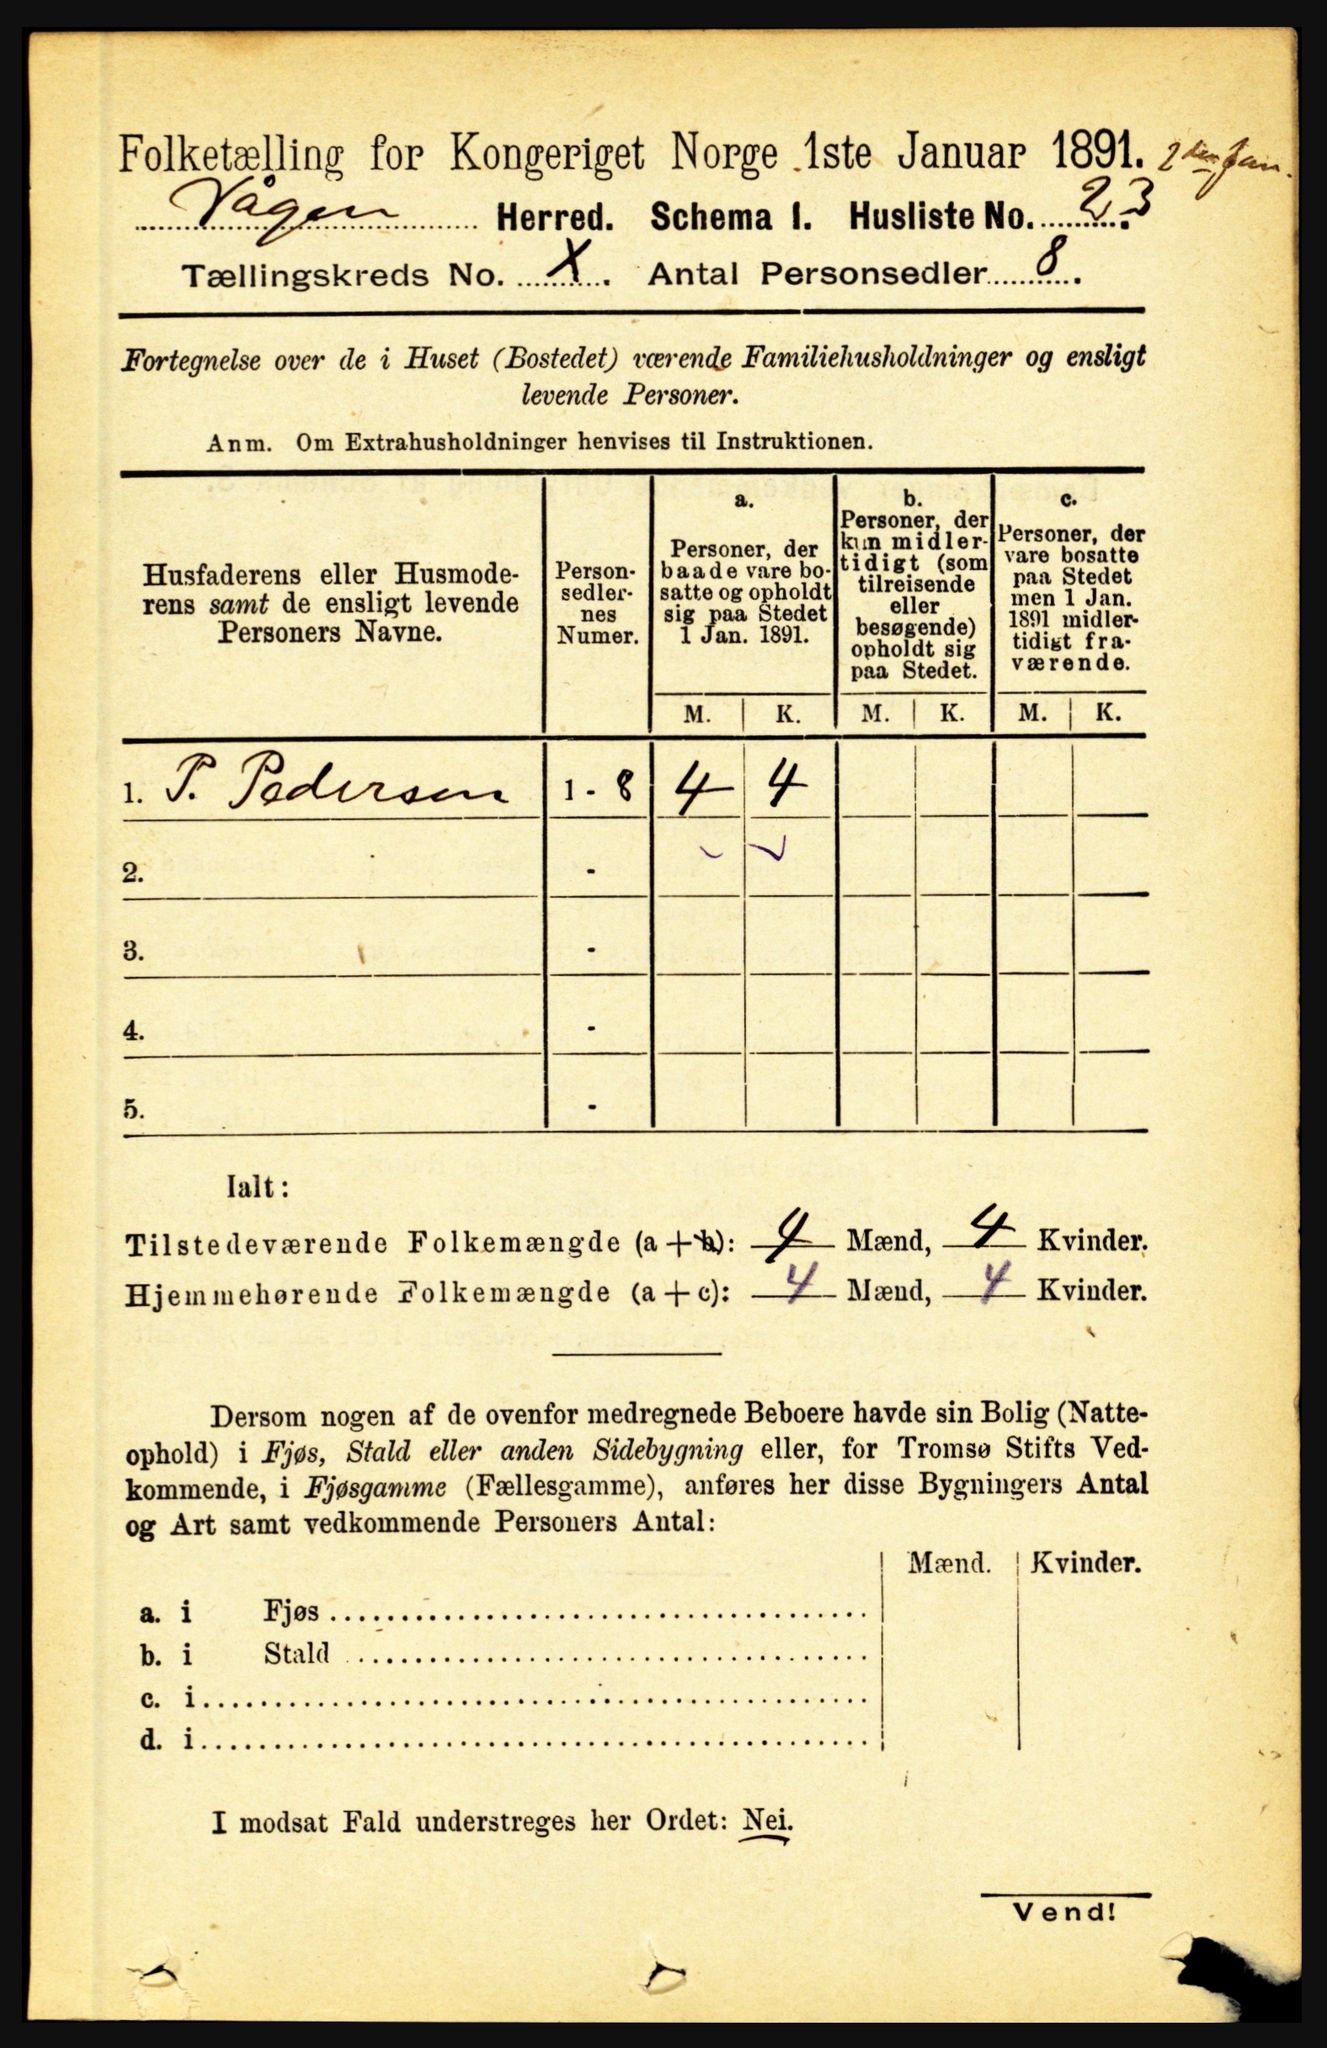 Folketælling for Kongeriget Norge 1ste Januar 1891. 2den Jan.
Vågen Herred. Schema 1. Husliste No. 23.
Tællingskreds No. X. Antal Personsedler 8.
Fortegnelse over de i Huset (Bostedet) værende Familiehusholdninger og ensligt
levende Personer.
Anm. Om Extrahusholdninger henvises til Instruktionen.
Husfaderens eller Husmode-
rens samt de ensligt levende
Personers Navne.
Person-
sedler-
nes
Numer.
a.
Personer, der
baade vare bo-
satte og opholdt
sig paa Stedet
1 Jan. 1891.
b.
Personer, der
kun midler-
tidigt (som
tilreisende
eller
besøgende)
opholdt sig
paa Stedet.
c.
Personer, der
vare bosatte
paa Stedet
men 1 Jan.
1891 midler-
tidigt fra-
værende.
M. K. M. K. M. K.
1. P. Pedersen 1 - 8 4 4
2. -
3. -
4. -
5. -
Ialt:
Tilstedeværende Folkemængde (a + b): 4 Mænd, 4 Kvinder.
Hjemmehørende Folkemængde (a + c): 4 Mænd, 4 Kvinder.
Dersom nogen af de ovenfor medregnede Beboere havde sin Bolig (Natte-
ophold) i Fjøs, Stald eller anden Sidebygning eller, for Tromsø Stifts Ved-
kommende, i Fjøsgamme (Fællesgamme), anføres her disse Bygningers Antal
og Art samt vedkommende Personers Antal:
Mænd. Kvinder.
a. i Fjøs
b. i Stald
c. i
d. i
I modsat Fald understreges her Ordet: Nei.
Vend!